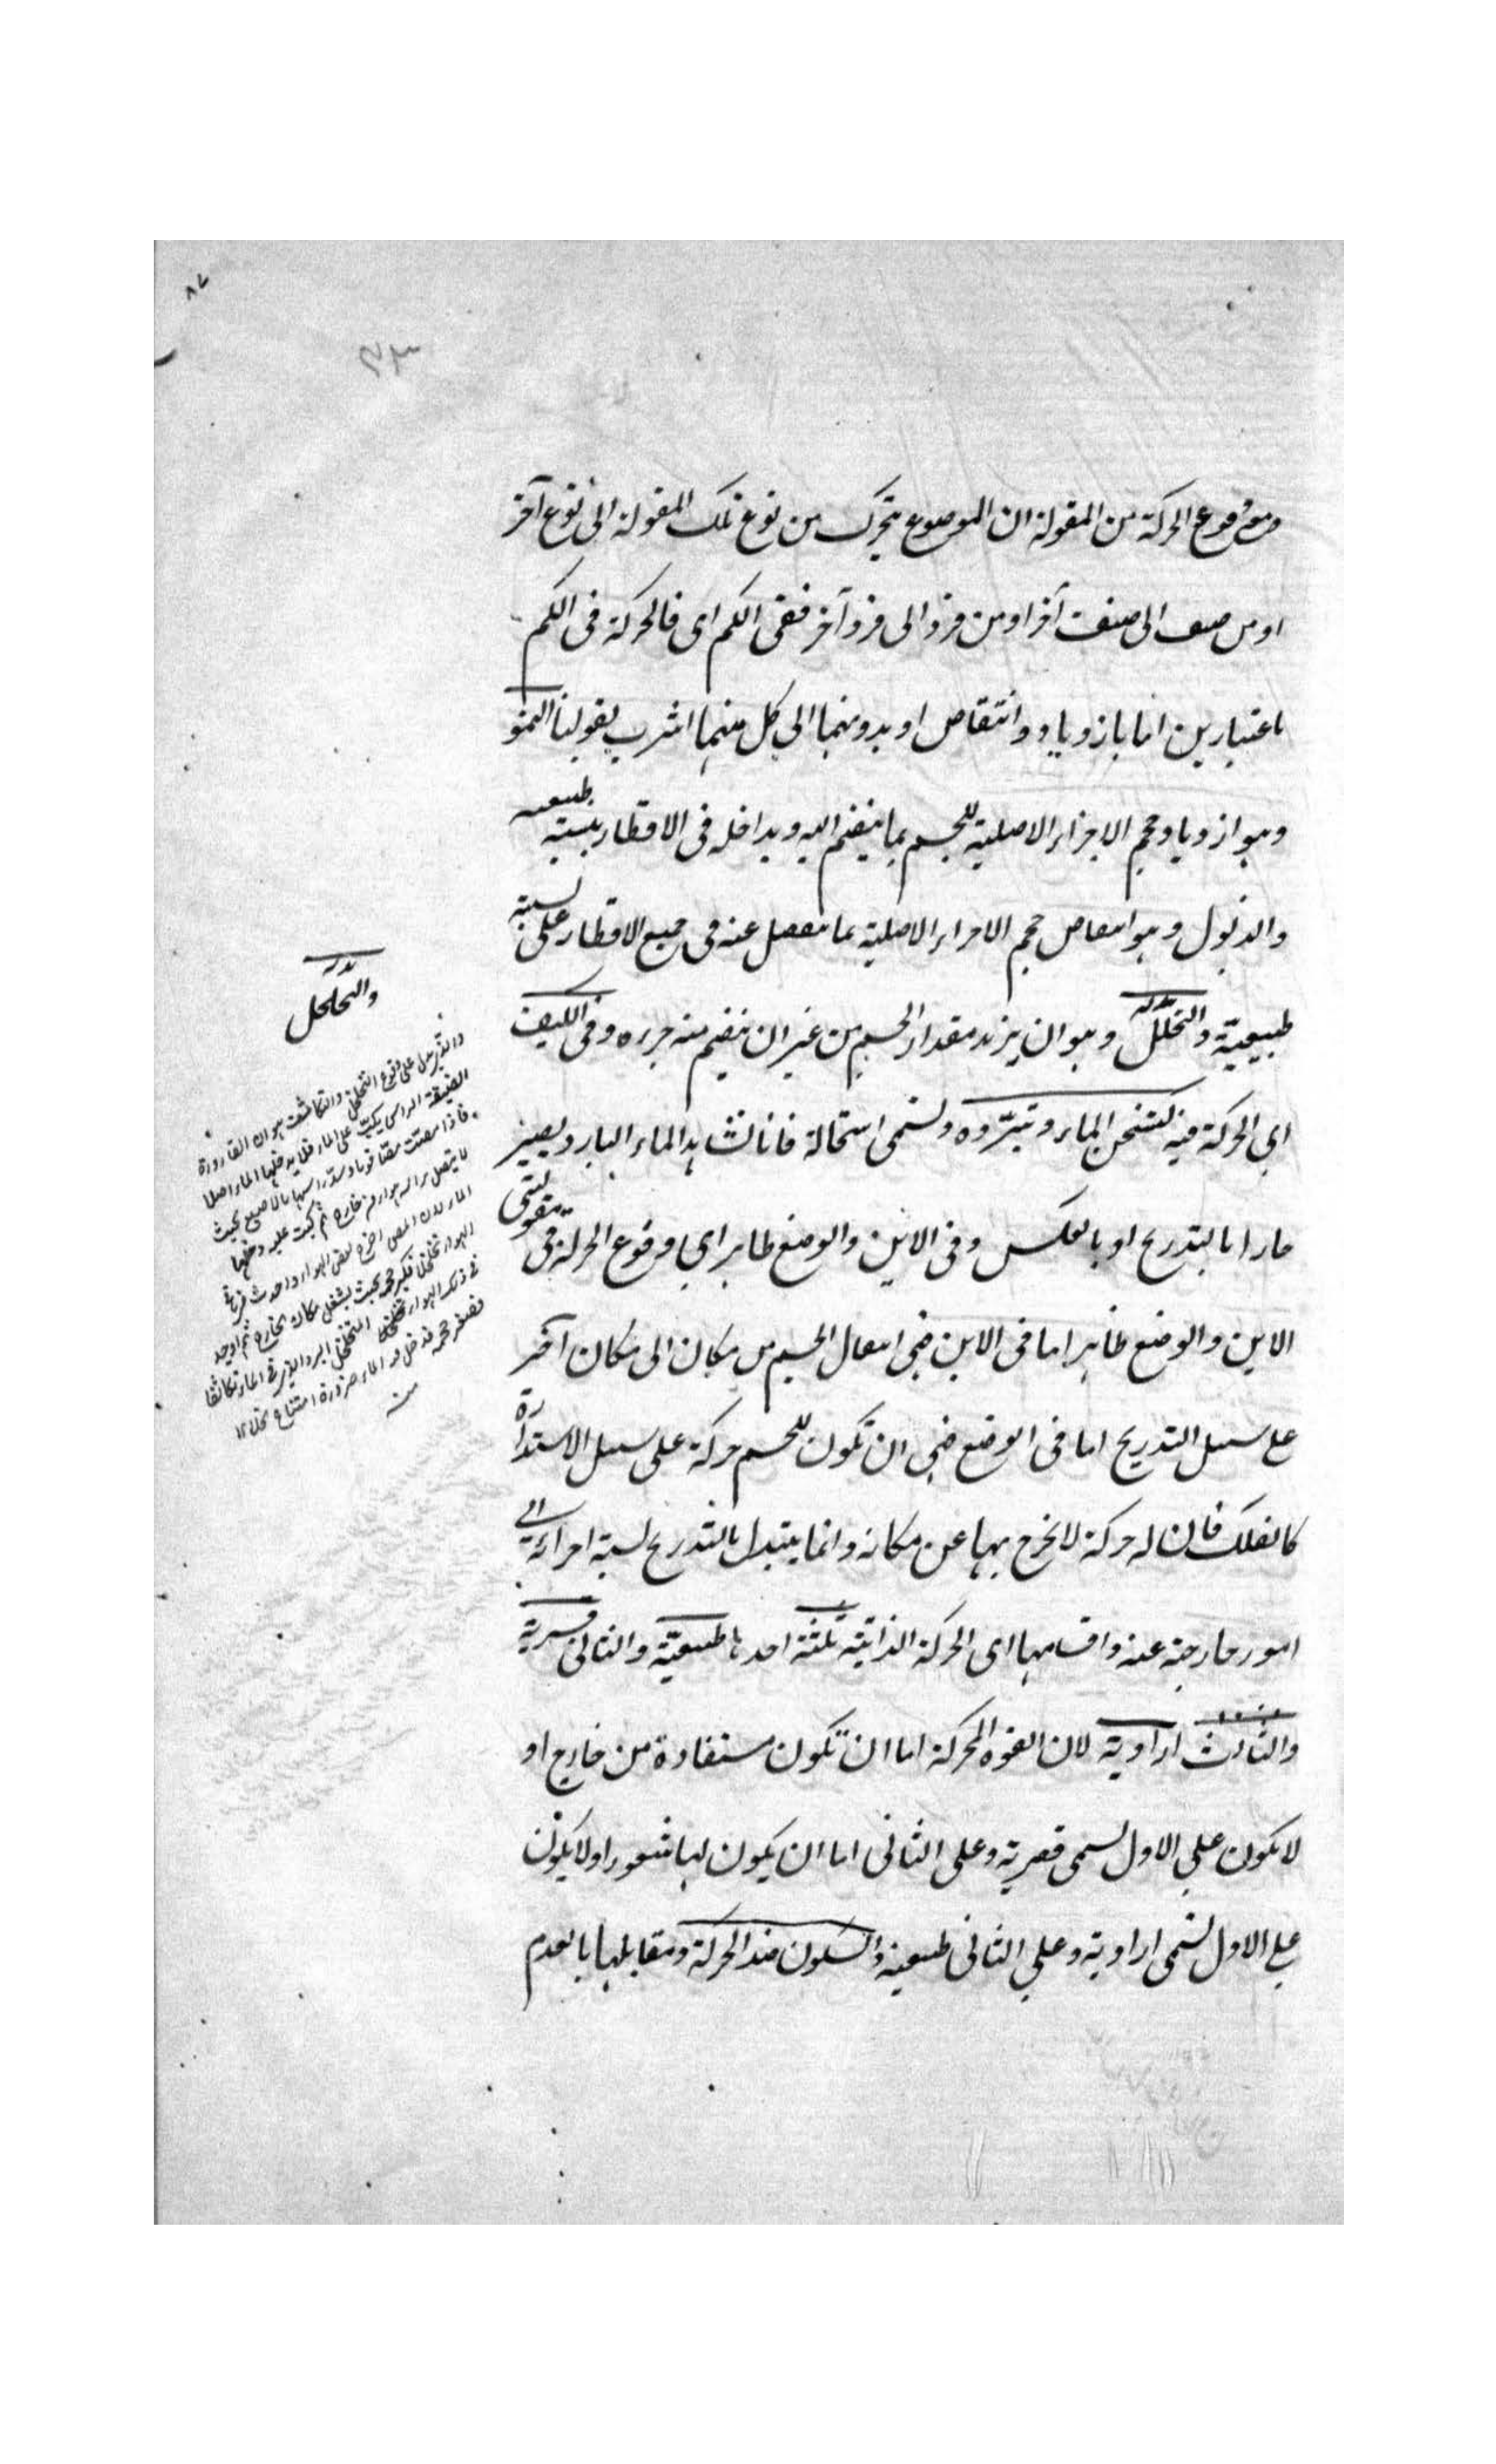 ٨٧
ومعنى وقوع الحركة من المقولة ان الموضوع يتحرك من نوع تلك المقولة الى نوع آخر
او من صنف الى صنف آخر او من فرد الى فرد آخر ففى الكم اى فالحركة فى الكم
باعتبارين اما بازدياد وانتقاص او بدونهما الى كل منهما اشرب بقولنا النمو
وهو ازدياد حجم الاجزاء الاصلية للجسم بما ينضم اليه ويداخله فى الاقطار بنسبته طبيعيه
والذبول وهو انتقاص حجم الاجزاء الاصلية بما ينفصل عنه فى جميع الاقطار على نسبته
طبيعيّة والتخلل وهو ان يزيد مقدار الجسم من غير ان ينضم منه جزءه وفى الكيف
اى الحركة فيه كتسخن الماء وتبرّده وتسمى استحالة فانا نشاهد الماء البارد يصير
حارا بالتدريج او بالعكس وفى الاين والوضع ظاهر اى وقوع الحركة فى مقولتى
الاين والوضع ظاهر اما فى الاين فهى انتقال الجسم من مكان الى مكان آخر
على سبيل التدريج اما فى الوضع فهى ان تكون للجسم حركة على سبيل الاستدارة
كالفلك فان له حركة لا يخرج بها عن مكانه وانما يتبدل بالتدريج نسبة اجزائه الى
امور خارجة عنه واقسامها اى الحركة الذاتية ثلثة احدها طبيعيّة والثانى قسرية
والثالث ارادية لان القوة المحركة اما ان تكون مستفادة من خارج او
لا يكون على الاول تسمى قصرية وعلى الثانى اما ان يكون لها شعور او لا يكون
على الاول تسمى ارادية وعلى الثانى طبيعية والسكون ضد الحركة ومقابلها بالعدم
والتخلخل
والذى يدل على وقوع التخلخل والتكاثف هو ان القارورة
الضيقة الراس يكبّ على الماء فلا يدخلها الماء اصلا
فاذا مصت مصّا قويا وسدّ راسها بالاصبع بحيث
لا يتصل براسه هواء من خارج ثم كبت عليه دخلها
الماء لان المص اخرج بعض الهواء واحدث فى
الهواء تخلخلا فكبر حجمه بحيث يشغل مكان الخارج ثم اوجد
البرد الذى فى الماء تكاثفا
فصغر حجمه فدخل الماء ضرورة امتناع الخلا ١٢
منه